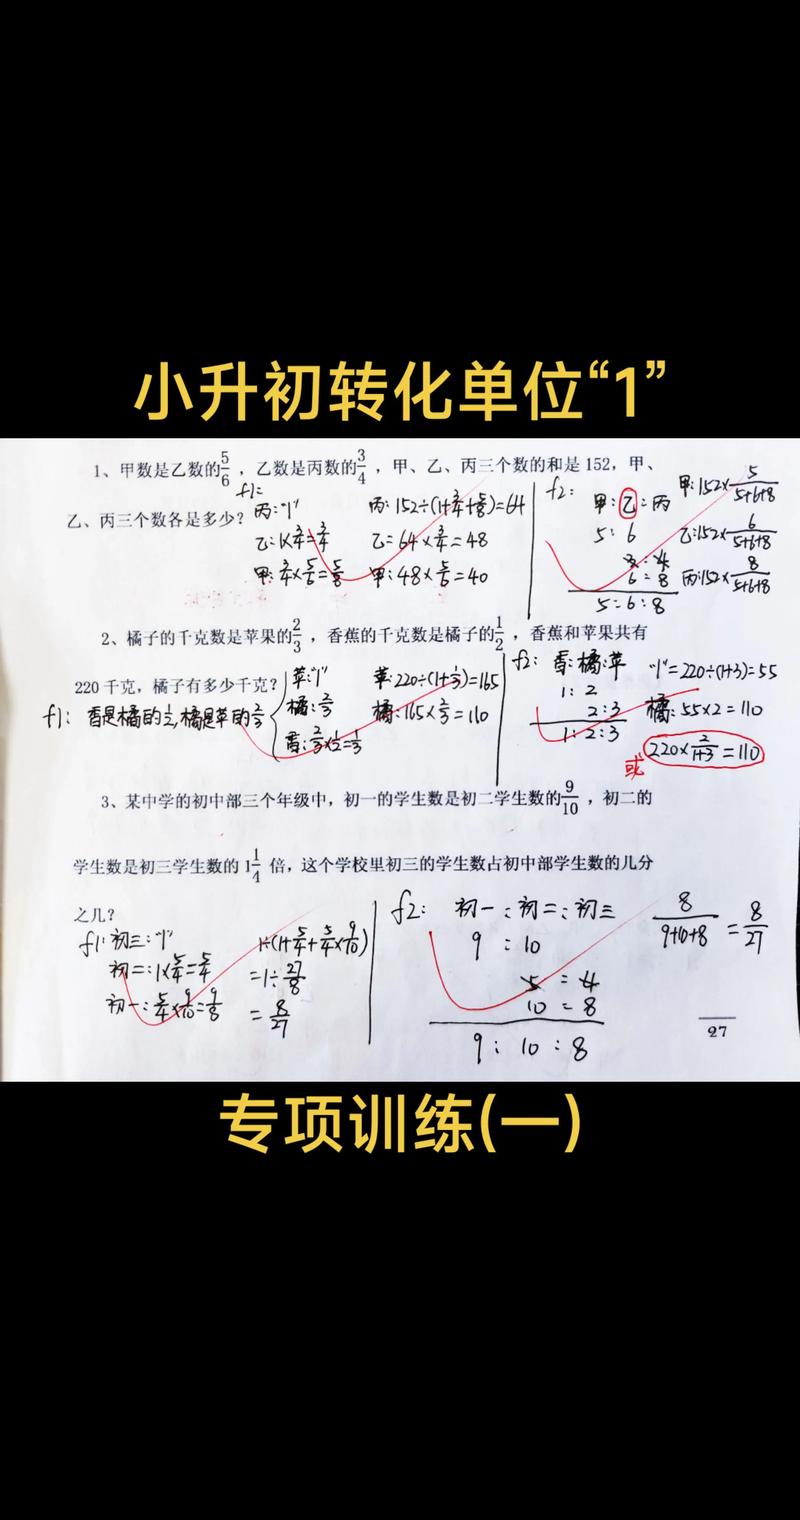 小升初转化单位“1”
1、甲数是乙数的5/6，乙数是丙数的3/4，甲、乙、丙三个数的和是152，甲、
乙、丙三个数各是多少？
f1:
丙:“1” 丙:152÷(1+3/4+5/8)=64
乙:1×3/4=3/4 乙=64×3/4=48
甲:3/4×5/6=5/8 甲:48×5/6=40
f2:
甲:乙:丙
5:6
3:4
6=8
5:6:8
甲:152×5/(5+6+8)
乙:152×6/(5+6+8)
丙:152×8/(5+6+8)
2、橘子的千克数是苹果的2/3，香蕉的千克数是橘子的1/2，香蕉和苹果共有
220千克，橘子有多少千克？
f1: 香是橘的1/2,橘是苹的2/3
苹:“1” 苹:220÷(1+1/3)=165
橘:2/3 橘:165×2/3=110
香:2/3×1/2=1/3
f2: 香:橘:苹 “1”=220÷(1+3)=55
1:2
2:3 橘:55×2=110
1:2:3
或 220×2/(1+3)=110
3、某中学的初中部三个年级中，初一的学生数是初二学生数的9/10，初二的
学生数是初三学生数的1 1/4倍，这个学校里初三的学生数占初中部学生数的几分
之几？
f1:初三:“1” 1÷(1+5/4+5/4×9/10)
初二:1×5/4=5/4 =1÷27/8
初一:5/4×9/10=9/8 =8/27
f2: 初一:初二:初三 8/(9+10+8)=8/27
9:10
5=4
10=8
9:10:8
27
专项训练(一)